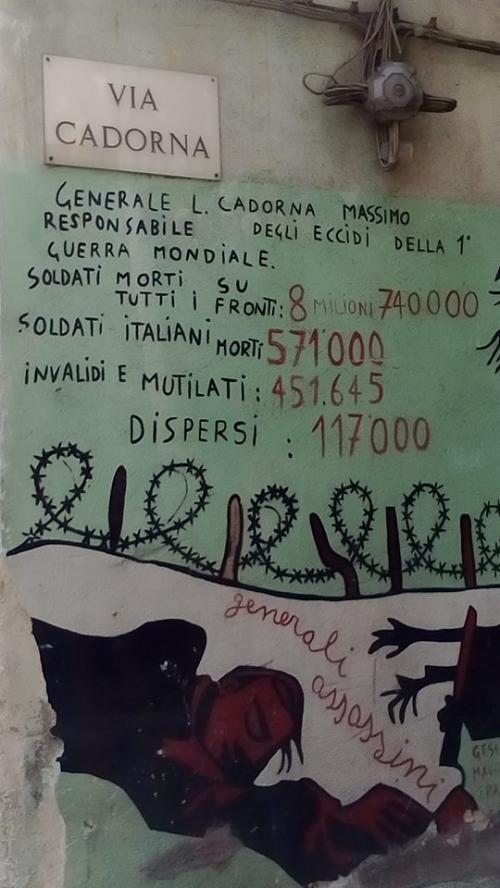 VIA
CADORNA
GENERALE L. CADORNA MASSIMO
RESPONSABILE DEGLI ECCIDI DELLA 1°
GUERRA MONDIALE.
SOLDATI MORTI SU
TUTTI I FRONTI: 8 MILIONI 740000
SOLDATI ITALIANI MORTI 571000
INVALIDI E MUTILATI: 451.645
DISPERSI : 117000
generali
assassini